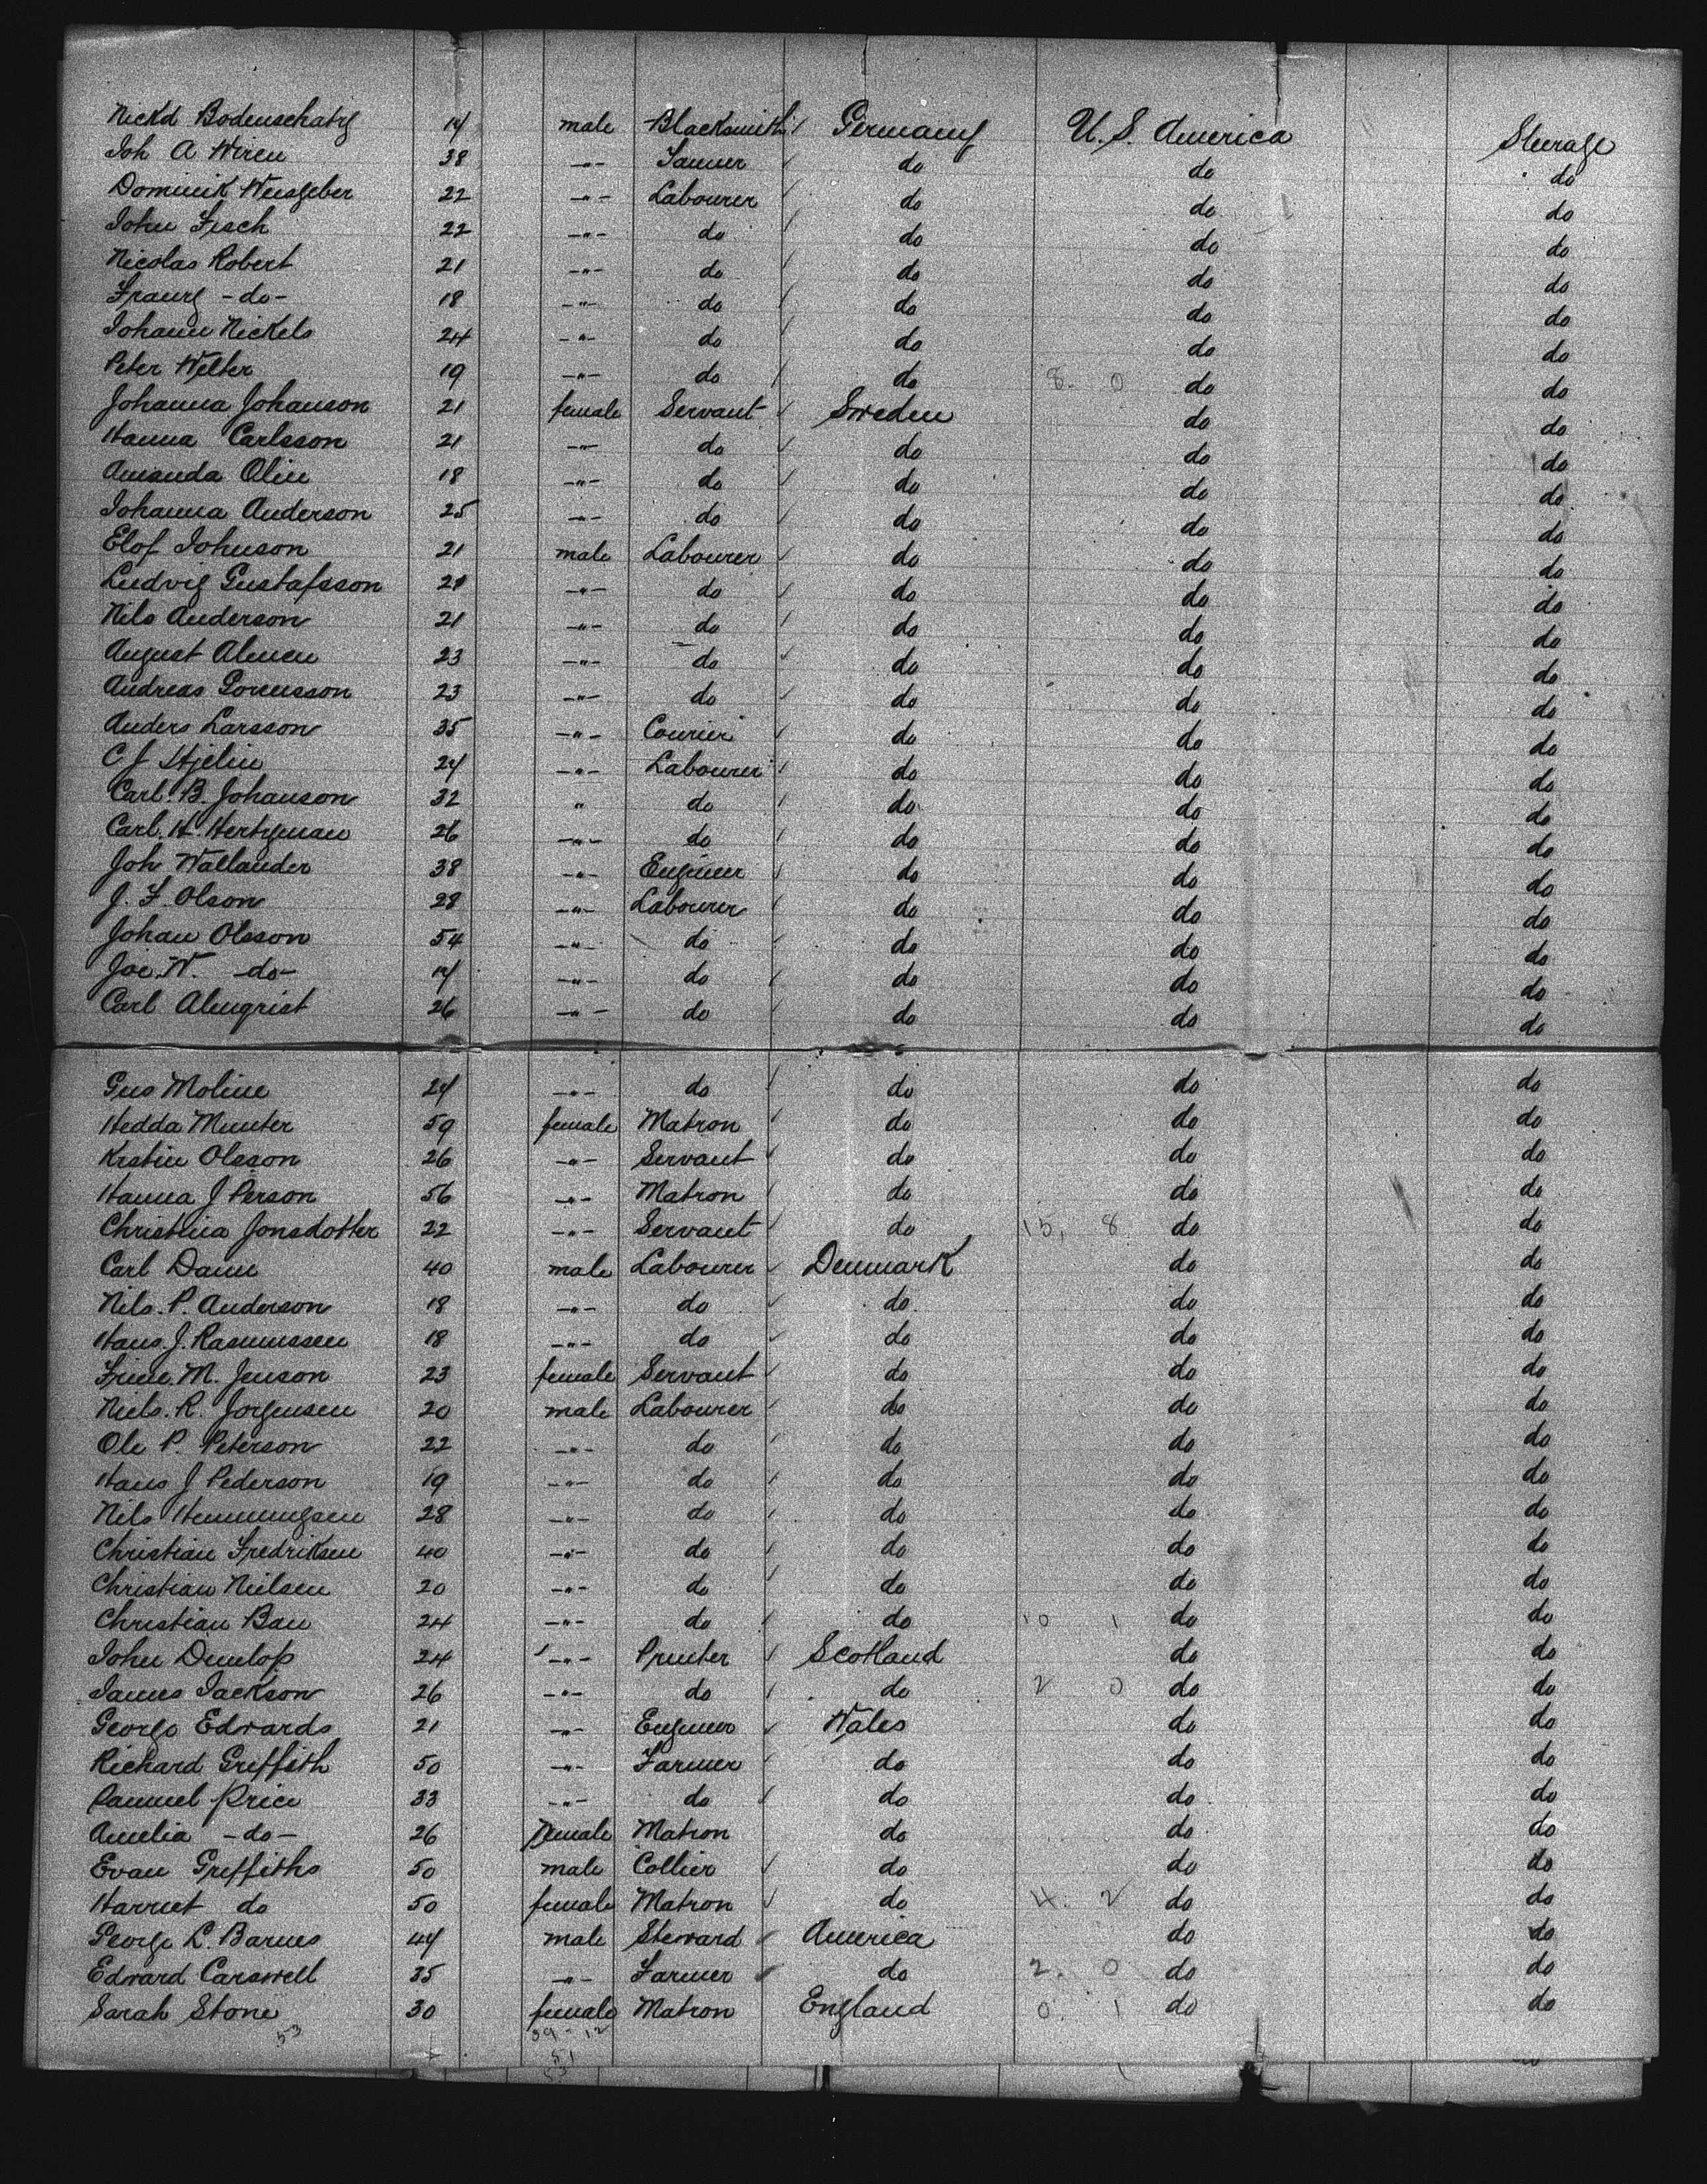 Nickd Bodenschatz 14 male Blacksmith Germany U. S. America Steerage
Joh A Wiren 38 -"- Farmer do do do
Dominik Weisgeber 22 -"- Labourer do do do
John Fisch 22 -"- do do do do
Nicolas Robert 21 -"- do do do do
Franz -do- 18 -"- do do do do
Johann Nickels 24 -"- do do do do
Peter Welter 19 -"- do do 8. 0 do do
Johanna Johanson 21 female Servant Sweden do do
Hanna Carlsson 21 -"- do do do do
Amanda Olin 18 -"- do do do do
Johanna Anderson 25 -"- do do do do
Elof Johnson 21 male Labourer do do do
Ludvig Gustafsson 21 -"- do do do do
Nils Anderson 21 -"- do do do do
August Almen 23 -"- do do do do
Andreas Sorensson 23 -"- do do do do
Anders Larsson 35 -"- Courier do do do
C J Hjelin 24 -"- Labourer do do do
Carl. B. Johanson 32 " do do do do
Carl. H. Hertzman 26 -"- do do do do
Joh Wallander 38 -"- Engineer do do do
J. F. Olson 28 -"- Labourer do do do
Johan Olsson 54 -"- do do do do
Joe. W. -do- 14 -"- do do do do
Carl Almqrist 26 -"- do do do do
Gus Moline 24 -"- do do do do
Hedda Munter 59 female Matron do do do
Krstin Olsson 26 -"- Servant do do do
Hanna J Person 56 -"- Matron do do do
Christina Jonsdotter 22 -"- Servant do 15, 8 do do
Carl Damm 40 male Labourer Denmark do do
Nils. P. Anderson 18 -"- do do do do
Hans. J. Rasmussen 18 -"- do do do do
Trine. M. Jenson 23 female Servant do do do
Niels. R. Jorgensen 20 male Labourer do do do
Ole P. Peterson 22 -"- do do do do
Hans J Pederson 19 -"- do do do do
Nils Hemmingsen 28 -"- do do do do
Christian Fredriksen 40 -"- do do do do
Christian Nielsen 20 -"- do do do do
Christian Bau 24 -"- do do 10 1 do do
John Dunlop 24 -"- Printer Scotland do do
James Jackson 26 -"- do do 2 0 do do
George Edwards 21 -"- Engineer Wales do do
Richard Griffith 50 -"- Farmer do do do
Samuel Price 33 -"- do do do do
Amelia -do- 26 female Matron do do do
Evan Griffiths 50 male Collier do do do
Harriet do 50 female Matron do 4. 2 do do
George L. Barnes 44 male Steward America do do
Edward Carswell 35 -"- Farmer do 2. 0 do do
Sarah Stone 30 female Matron England 0. 1 do do
53 39 - 12
51
53